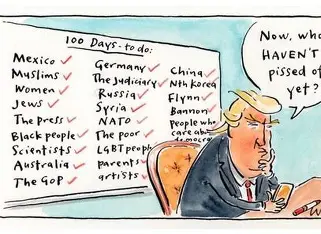 100 Days - to do:
Mexico ✓
Muslims ✓
Women ✓
Jews ✓
The Press ✓
Black people ✓
Scientists ✓
Australia ✓
The GOP ✓
Germany ✓
The Judiciary ✓
Russia ✓
Syria ✓
NATO ✓
The poor ✓
LGBT people
parents ✓
artists ✓
China ✓
Nth Korea ✓
Flynn ✓
Bannon ✓
people who
care about
Now, who
HAVEN'T
pissed of
yet?